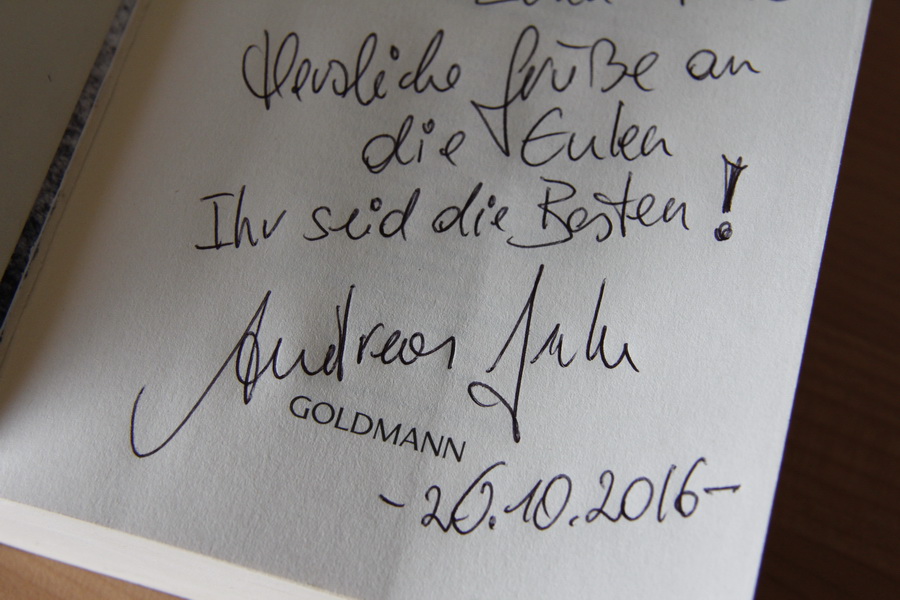 Herzliche Grüße an
die Eulen
Ihr seid die Besten!
Andreas
GOLDMANN
-26.10.2016-